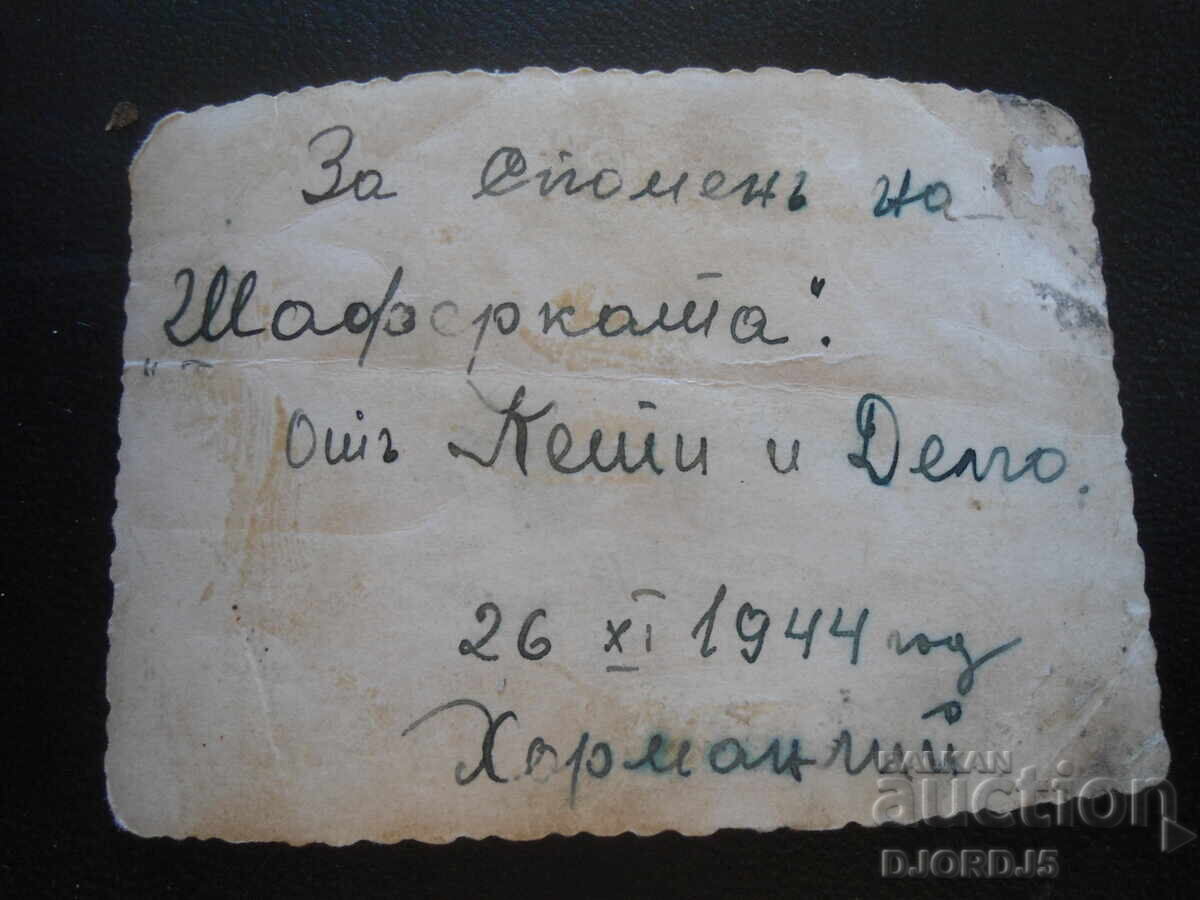 За Споменъ на
„Шаферката“.
отъ Кети и Делчо.
26 XI 1944 год
Харманлий
BALKAN
auction
DJORDJ5